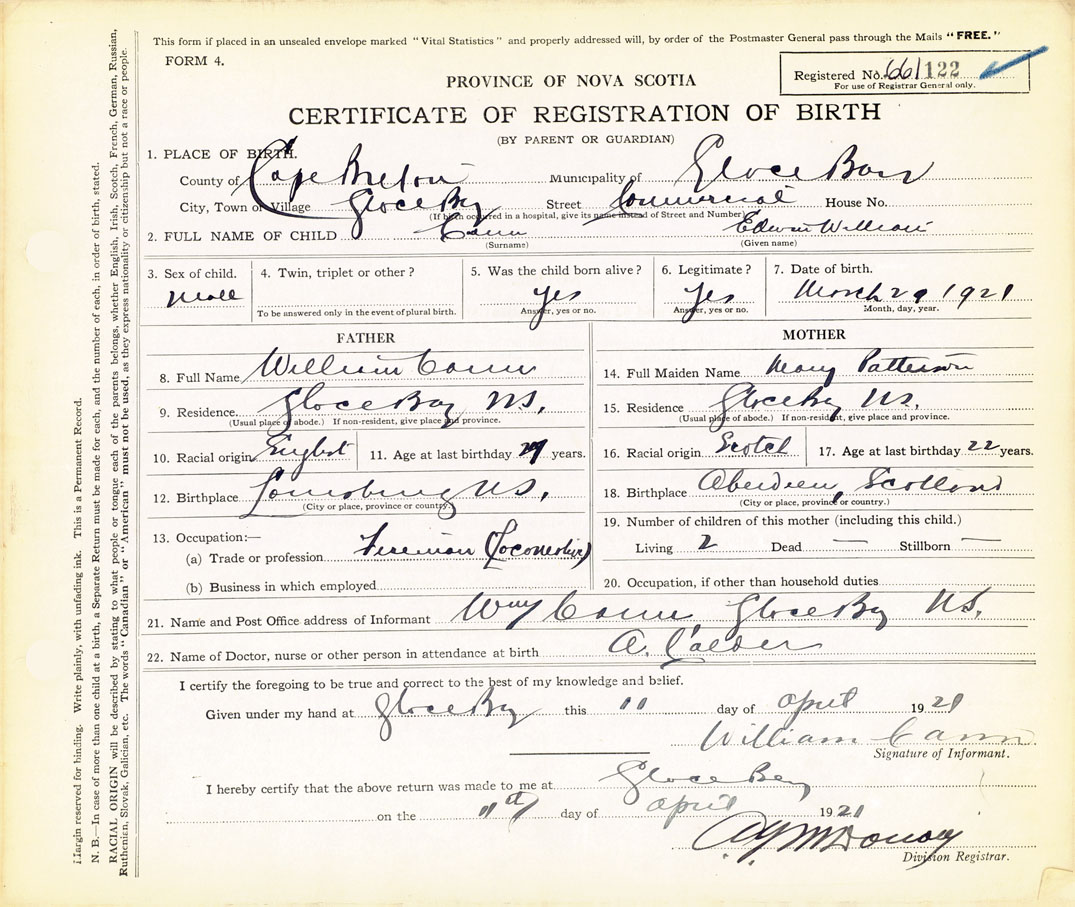 This form if placed in an unsealed envelope marked "Vital Statistics" and properly addressed will, by order of the Postmaster General pass through the Mails "FREE."
FORM 4.
Registered No. 661 122
For use of Registrar General only.
PROVINCE OF NOVA SCOTIA
CERTIFICATE OF REGISTRATION OF BIRTH
(BY PARENT OR GUARDIAN)
1. PLACE OF BIRTH.
County of Cape Breton Municipality of Glace Bay
City, Town or Village Glace Bay Street Commercial House No.
(If birth occurred in a hospital, give its name instead of Street and Number)
2. FULL NAME OF CHILD Cann Edwin William
(Surname) (Given name)
3. Sex of child. 4. Twin, triplet or other? 5. Was the child born alive? 6. Legitimate? 7. Date of birth.
Male yes yes March 29 1921
To be answered only in the event of plural birth. Answer, yes or no. Answer, yes or no. Month, day, year.
FATHER
8. Full Name William Cann
9. Residence. Glace Bay N.S.
(Usual place of abode.) If non-resident, give place and province.
10. Racial origin English 11. Age at last birthday years.
12. Birthplace Louisburg N.S.
(City or place, province or country.)
13. Occupation:—
(a) Trade or profession Fireman (Locomotive)
(b) Business in which employed
MOTHER
14. Full Maiden Name Mary Patterson
15. Residence Glace Bay N.S.
(Usual place of abode.) If non-resident, give place and province.
16. Racial origin Scotch 17. Age at last birthday 22 years.
18. Birthplace Aberdeen, Scotland
(City or place, province or country.)
19. Number of children of this mother (including this child.)
Living 2 Dead — Stillborn —
20. Occupation, if other than household duties
21. Name and Post Office address of Informant Wm Cann Glace Bay N.S.
22. Name of Doctor, nurse or other person in attendance at birth A. Calder
I certify the foregoing to be true and correct to the best of my knowledge and belief.
Given under my hand at Glace Bay this 11 day of April 1921
William Cann
Signature of Informant.
I hereby certify that the above return was made to me at Glace Bay
on the 11th day of April 1921
Division Registrar.
Margin reserved for binding. Write plainly, with unfading ink. This is a Permanent Record.
N. B.—In case of more than one child at a birth, a Separate Return must be made for each, and the number of each, in order of birth, stated.
RACIAL ORIGIN will be described by stating to what people or tongue each of the parents belongs, whether English, Irish, Scotch, French, German, Russian,
Ruthenien, Slovak, Galician, etc. The words "Canadian" or "American" must not be used, as they express nationality or citizenship but not a race or people.